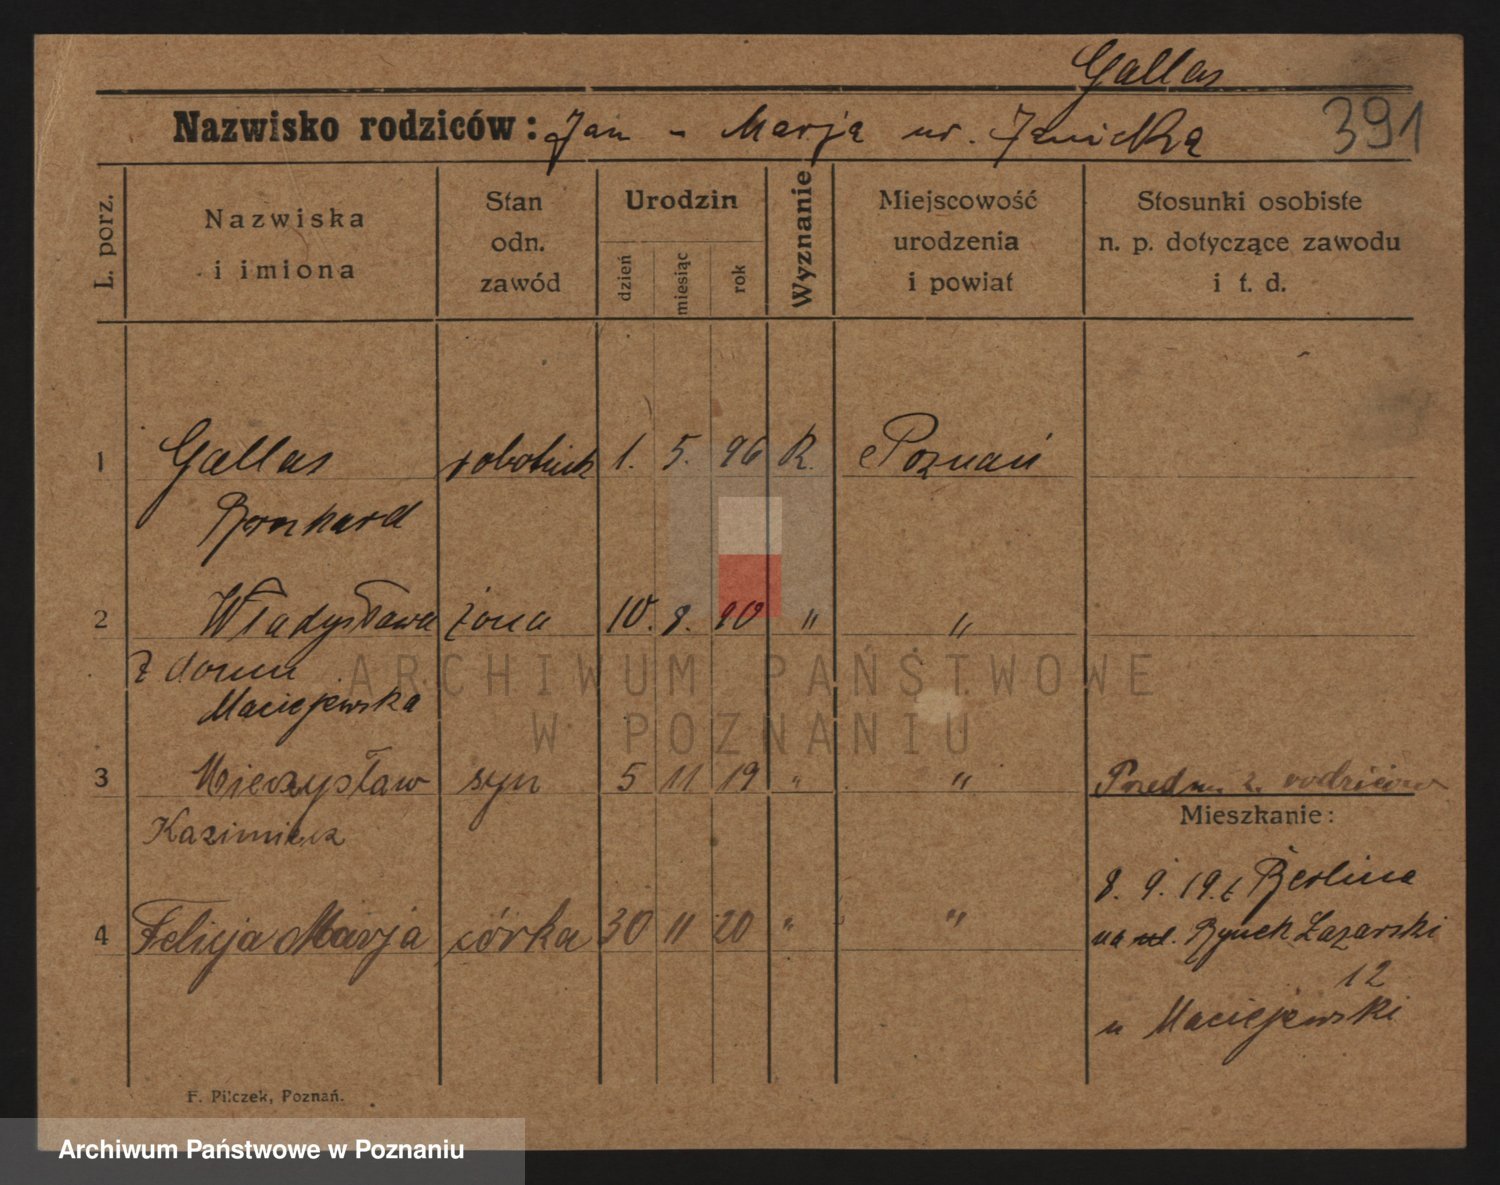 Gallas
Nazwisko rodziców: Jan - Marja ur. Janicka
391
L. porz.
Nazwiska
i imiona
Stan
odn.
zawód
Urodzin
dzień
miesiąc
rok
Wyznanie
Miejscowość
urodzenia
i powiat
Stosunki osobiste
n. p. dotyczące zawodu
i t. d.
1 Gallas robotnik 1. 5. 96 R. Poznań
Bernhard
2 Władysława żona 10. 8. 90 " "
z domu
Maciejewska
ARCHIWUM PAŃSTWOWE
W POZNANIU
3 Mieczysław syn 5 11 19 " " rodziców
Kazimierz
Mieszkanie:
8. 9. 19. z Berlina
4 Felicja Marja córka 30 11 20 " "
na ul. Rynek Łazarski
12
u Maciejewski
F. Pilczek, Poznań.
Archiwum Państwowe w Poznaniu